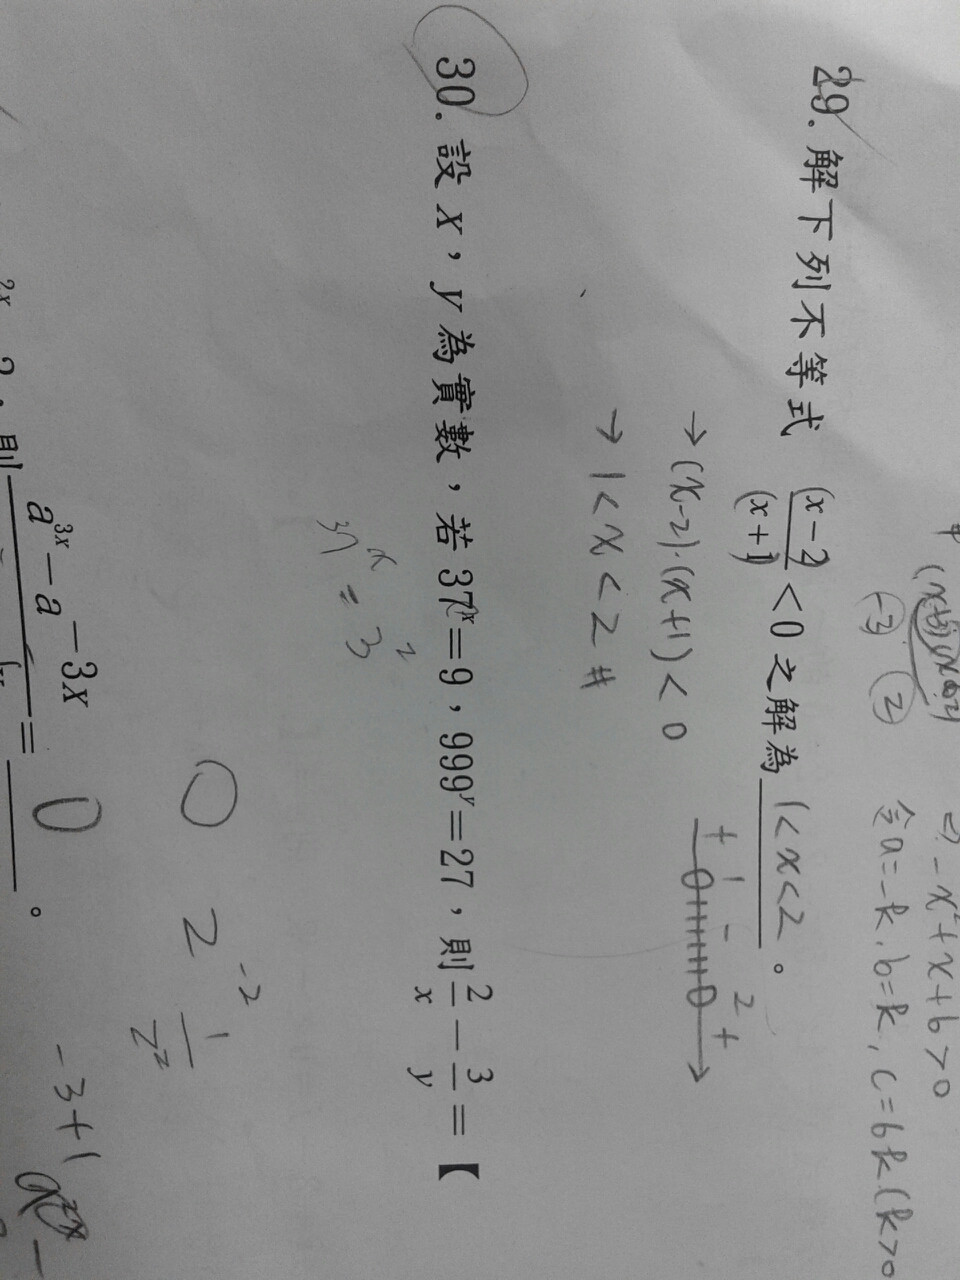 ⇒ -x²+x+6>0
令a=-k, b=k, c=6k (k>0
(-3) (2)
29. 解下列不等式 (x-2)/(x+1) <0 之解為 1<x<2 。
→ (x-2)·(x+1) < 0
+ 1 - 2 +
→ 1<x<2 #
30. 設 x，y 為實數，若 37ˣ=9，999ʸ=27，則 2/x - 3/y = 【
37ˣ = 3²
0 2⁻² 1/2²
2x
則 a³ˣ-a⁻³ˣ = 。
0
-3+1